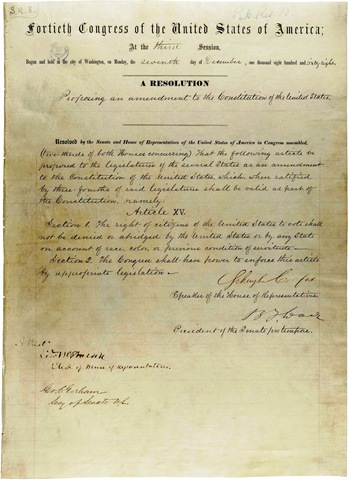 S.R. 8.
Pub. Res. 10.
Fortieth Congress of the United States of America;
At the third Session,
Begun and held at the city of Washington, on Monday, the seventh day of December, one thousand eight hundred and sixty-eight.
A RESOLUTION
Proposing an amendment to the Constitution of the United States.
Resolved by the Senate and House of Representatives of the United States of America in Congress assembled,
(two-thirds of both Houses concurring) That the following article be
proposed to the legislatures of the several States as an amendment
to the Constitution of the United States which, when ratified
by three-fourths of said legislatures shall be valid as part of
the Constitution, namely:
Article XV.
Section 1. The right of citizens of the United States to vote shall
not be denied or abridged by the United States or by any State
on account of race, color, or previous condition of servitude—
Section 2. The Congress shall have power to enforce this article
by appropriate legislation—
Schuyler Colfax
Speaker of the House of Representatives.
B F Wade
President of the Senate pro tempore.
Attest
Clerk of House of Representatives.
Geo. C. Gorham
Secy of Senate U.S.